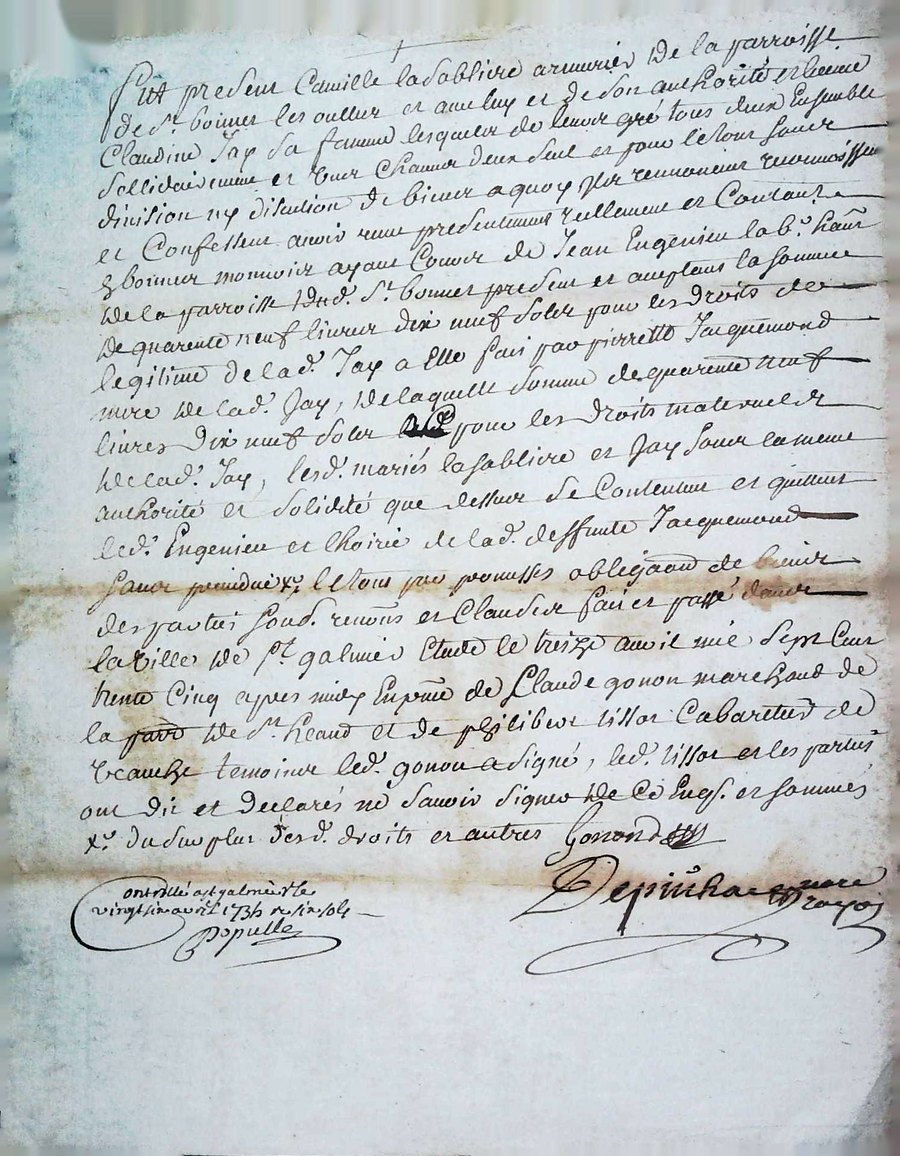 Fut present Camille lasabliere armurier de la parroisse
de St. bonnet les oulles et avec luy et de son authorité et licence
Claudine Jay sa famme lesquels de leur gré tous deux Ensemble
sollidairement et l'un chacun deux seul et pour le tout sans
division ny discution de biens a quoy ils renoncent reconnoissent
et Confessent avoir reçu presentement reellement et Contant en
bonnes monnoies ayant Cours de Jean Engenieu lab.r hañt
de la parroisse dud. St. bonnet present et aceptant la somme
de quarente neuf livres dix neuf sols pour les droits de
legitime de lad. Jay a Elle fait par pierrette Jacquemond
mere de lad. Jay, de laquelle somme de quarente neuf
livres dix neuf sols pour les droits maternels
de lad. Jay, lesd. mariés lasabliere et Jay sous la meme
authorité et solidité que dessus se Contentent et quittent
led. Engenieu et lhoirie de lad. deffunte Jacquemond
sans prejudice x.r le tout par promesses obligaon de biens
des parties soud. renons et Clauses fait et passé dans
la ville de St. galmier Etude le treize avril mil sept Cent
trente Cinq apres midy En pñce de Claude gonon marchand de
la parr de St. heand et de philibert tissot Cabaretier de
veauche temoins led. gonon a signé, led. tissot et les parties
ont dit et declarés ne savoir signer de Ce Enqs. et sommés
x.r du surplus desd. droits et autres Gonond
Controllé a st galmier le
vingt six avril 1735 r six sols
Populle
Depiuhac nore
Royal